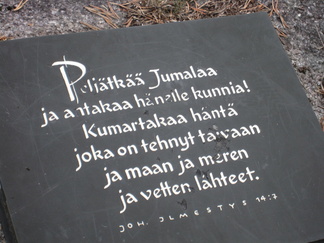 Peljätkää Jumalaa
ja antakaa hänelle kunnia!
Kumartakaa häntä
joka on tehnyt taivaan
ja maan ja meren
ja vetten lähteet.
JOH. ILMESTYS 14:7